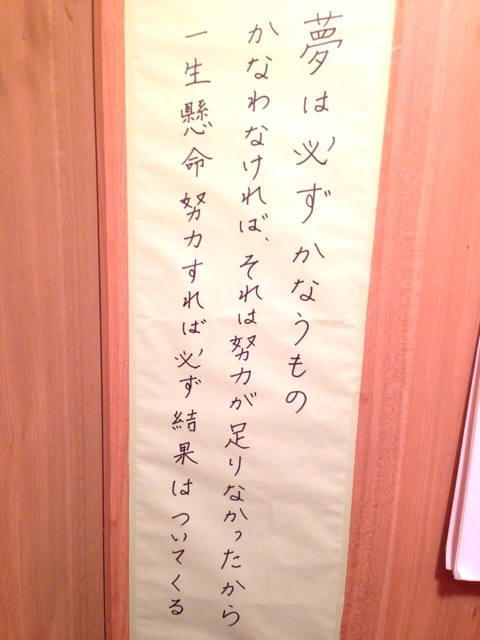 夢は必ずかなうもの
かなわなければ、それは努力が足りなかったから
一生懸命努力すれば必ず結果はついてくる